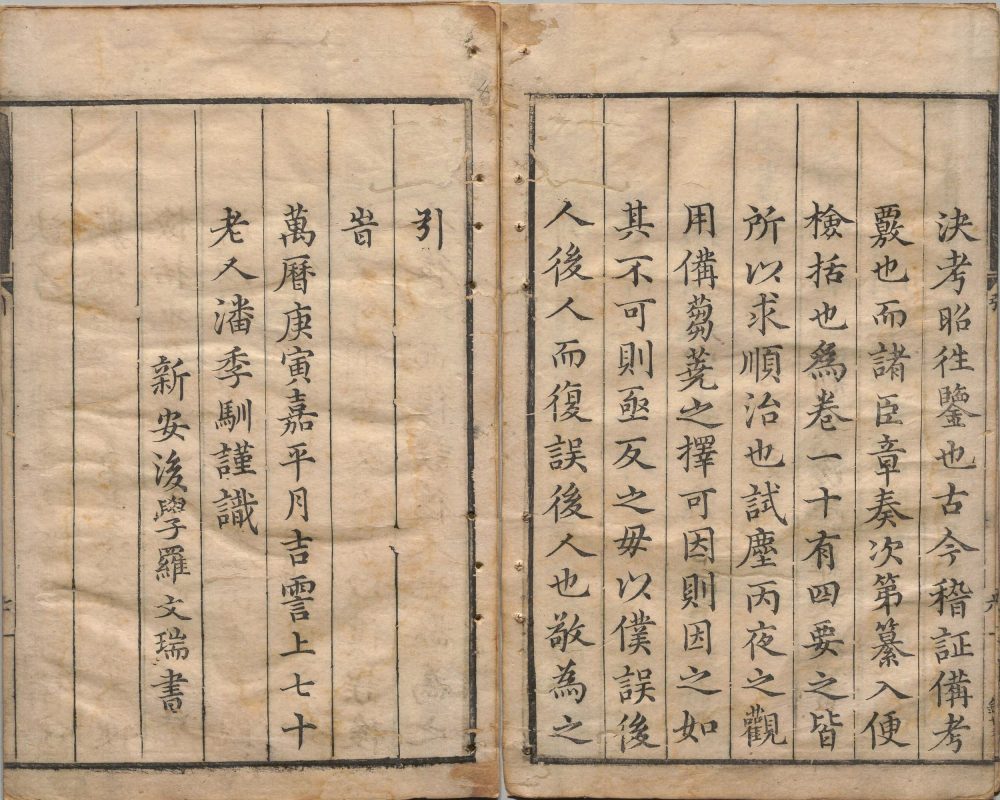 決考昭徃鑒也古今稽証備考
覈也而諸臣章奏次第纂入便
檢括也爲卷一十有四要之皆
所以求順治也試塵丙夜之觀
用備蒭蕘之擇可因則因之如
其不可則亟反之毋以僕誤後
人後人而復誤後人也敬為之
引
旹
萬曆庚寅嘉平月吉霅上七十
老人潘季馴謹識
新安後學羅文瑞書